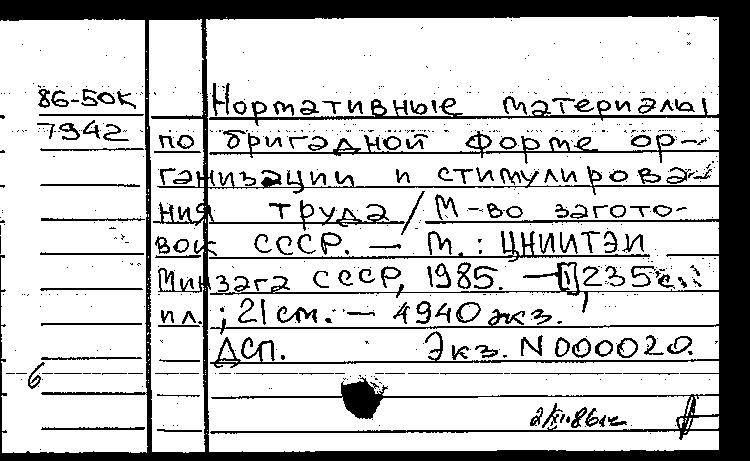 86-50К
7942
Нормативные материалы
по бригадной форме ор-
ганизации и стимулирова-
ния труда / М-во загото-
вок СССР. — М. : ЦНИИТЭИ
Минзага СССР, 1985. — 235 с.,
ил. ; 21 см. — 4940 экз.
ДСП. Экз. N 000020.
6